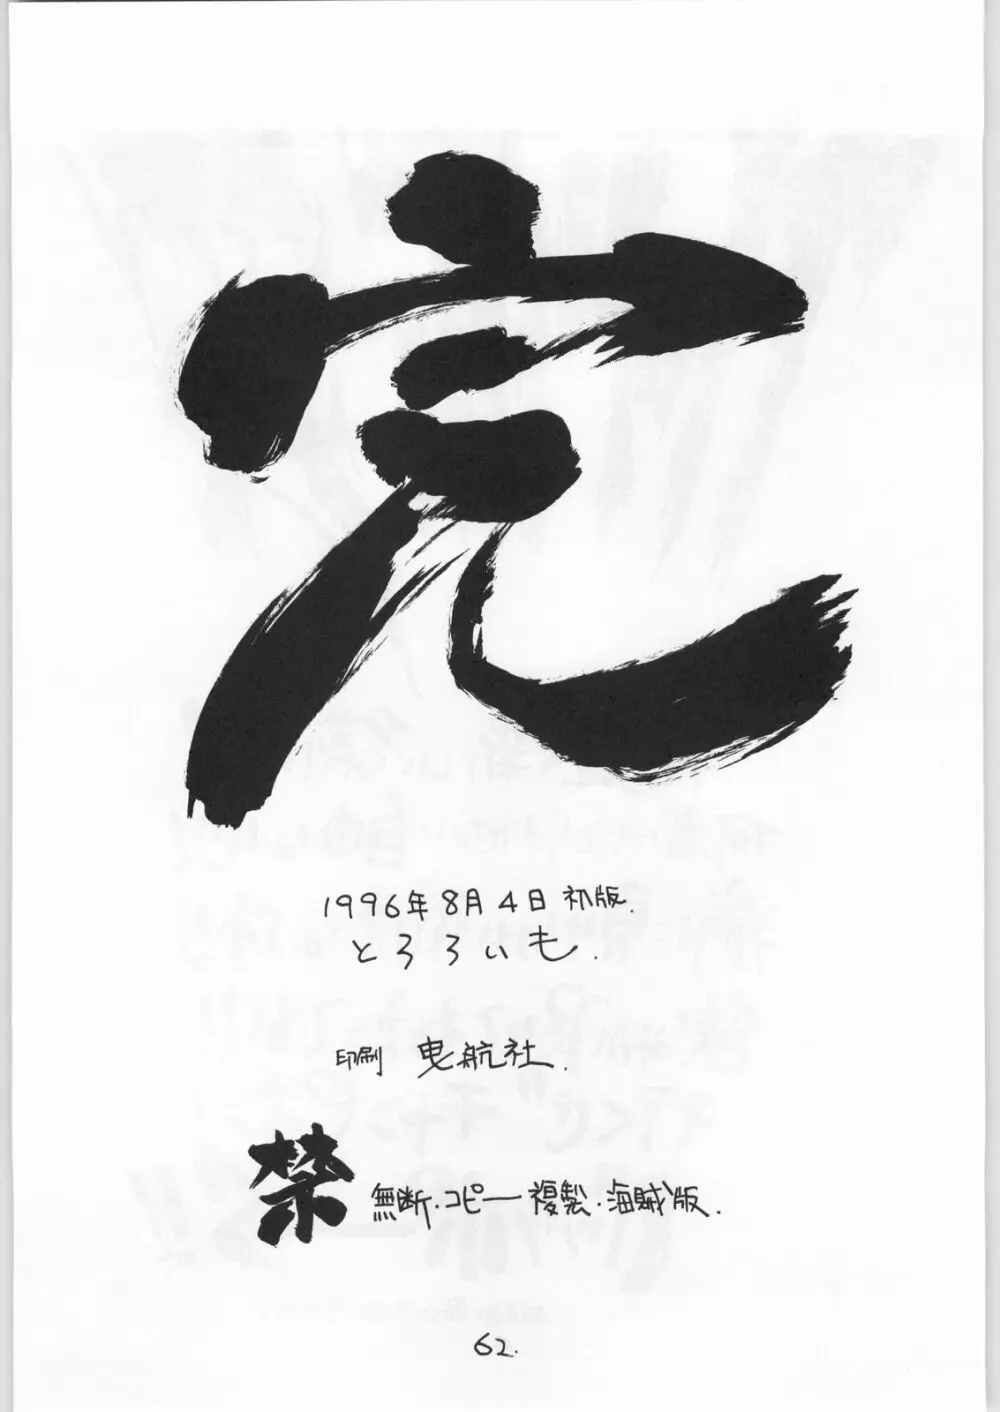 完
1996年8月4日 初版.
とろろいも.
印刷 曳航社.
禁 無断・コピー 複製・海賊版.
62.